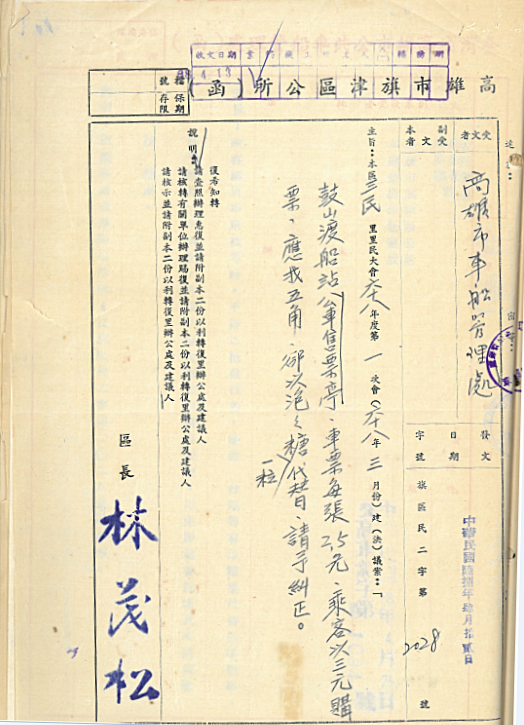 高雄市旗津區公所(函)
檔號
保存期限
收文日期
4.13
受文者
高雄市車船管理處
副本
受文者
發文
日期
中華民國陸捌年肆月拾貳日
字號
旗區民二字第2028號
主旨:本區三民里里民大會六八年度第一次會(六八年三月份)建(決)議案:「
鼓山渡船站公車售票亭、車票每張2.5元、乘客以三元購
票、應找五角、卻以泡泡糖一粒代替、請予糾正。
說明:
復希知轉
請查照辦理惠復並請附副本二份以利轉復里辦公處及建議人
請核轉有關單位辦理賜復並請附副本二份以利轉復里辦公處及建議人
請核示並請附副本二份以利轉復里辦公處及建議人
區長 林茂松